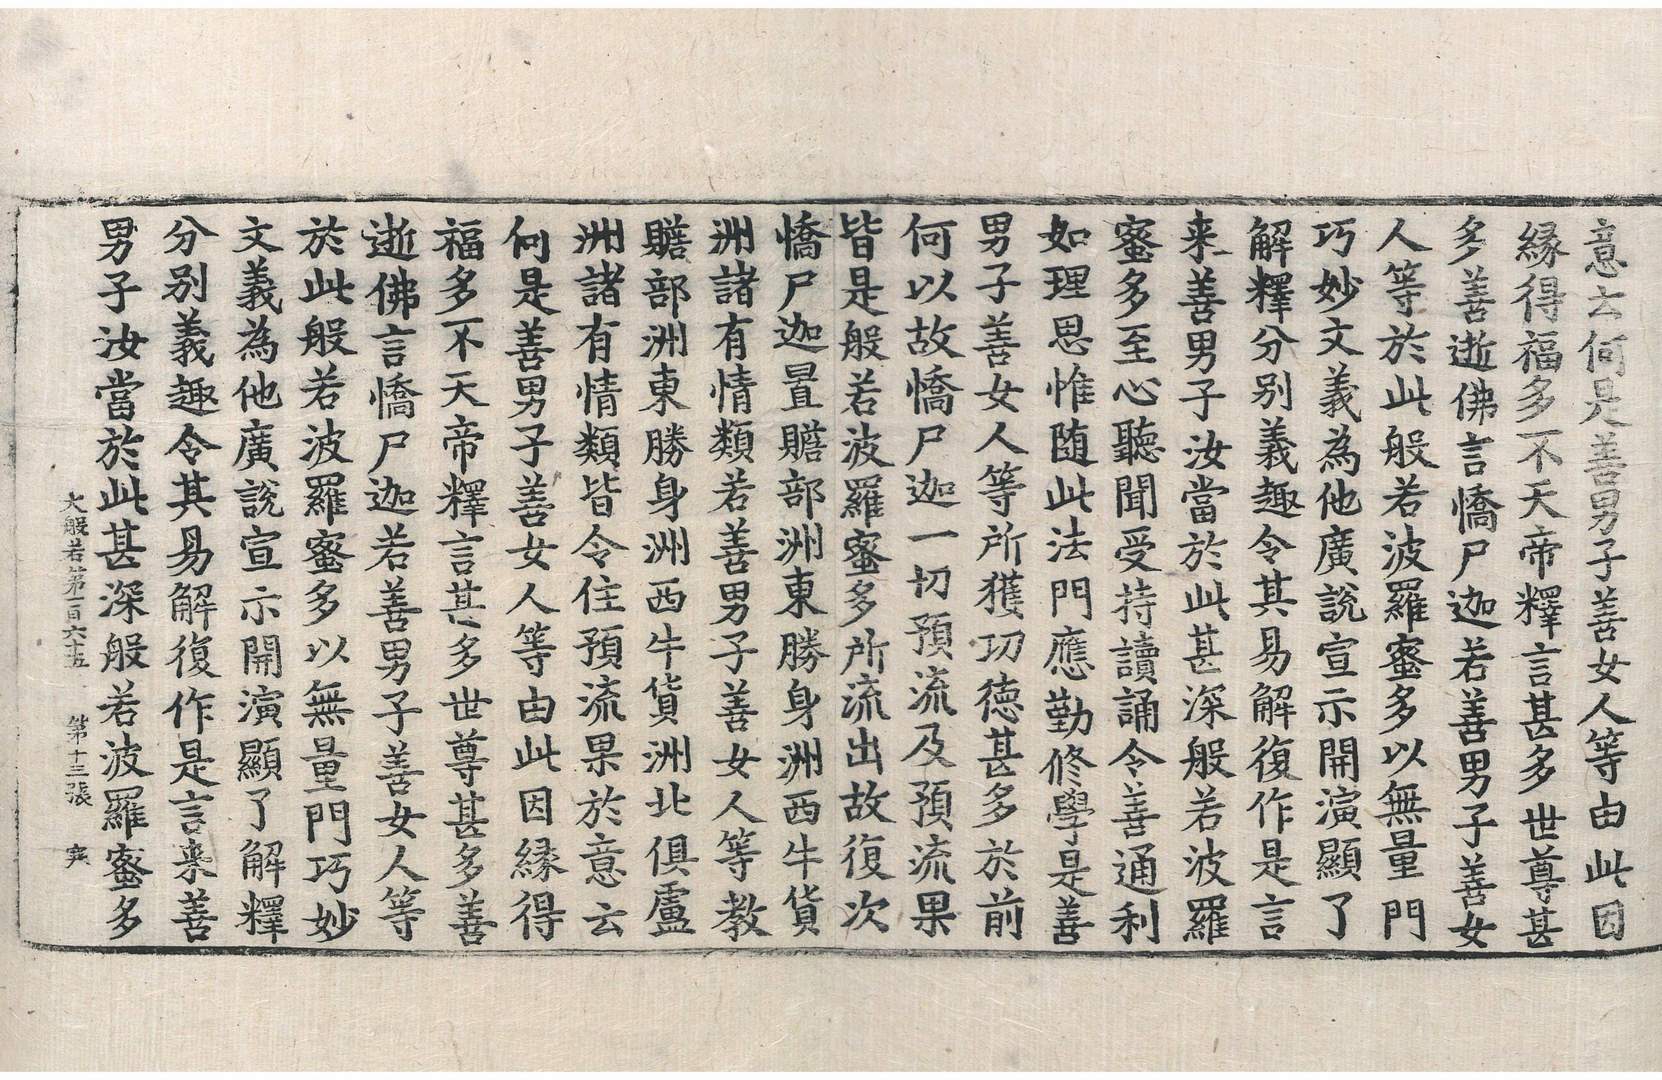 意云何是善男子善女人等由此因
縁得福多不天帝釋言甚多世尊甚
多善逝佛言憍尸迦若善男子善女
人等於此般若波羅蜜多以無量門
巧妙文義為他廣說宣示開演顯了
解釋分别義趣令其易解復作是言
来善男子汝當於此甚深般若波羅
蜜多至心聽聞受持讀誦令善通利
如理思惟随此法門應勤修學是善
男子善女人等所獲功德甚多於前
何以故憍尸迦一切預流及預流果
皆是般若波羅蜜多所流出故復次
憍尸迦置贍部洲東勝身洲西牛貨
洲諸有情類若善男子善女人等教
贍部洲東勝身洲西牛貨洲北俱盧
洲諸有情類皆令住預流果於意云
何是善男子善女人等由此因縁得
福多不天帝釋言甚多世尊甚多善
逝佛言憍尸迦若善男子善女人等
於此般若波羅蜜多以無量門巧妙
文義為他廣說宣示開演顯了解釋
分别義趣令其易解復作是言来善
男子汝當於此甚深般若波羅蜜多
大般若第一百六十五 第十三張 寒